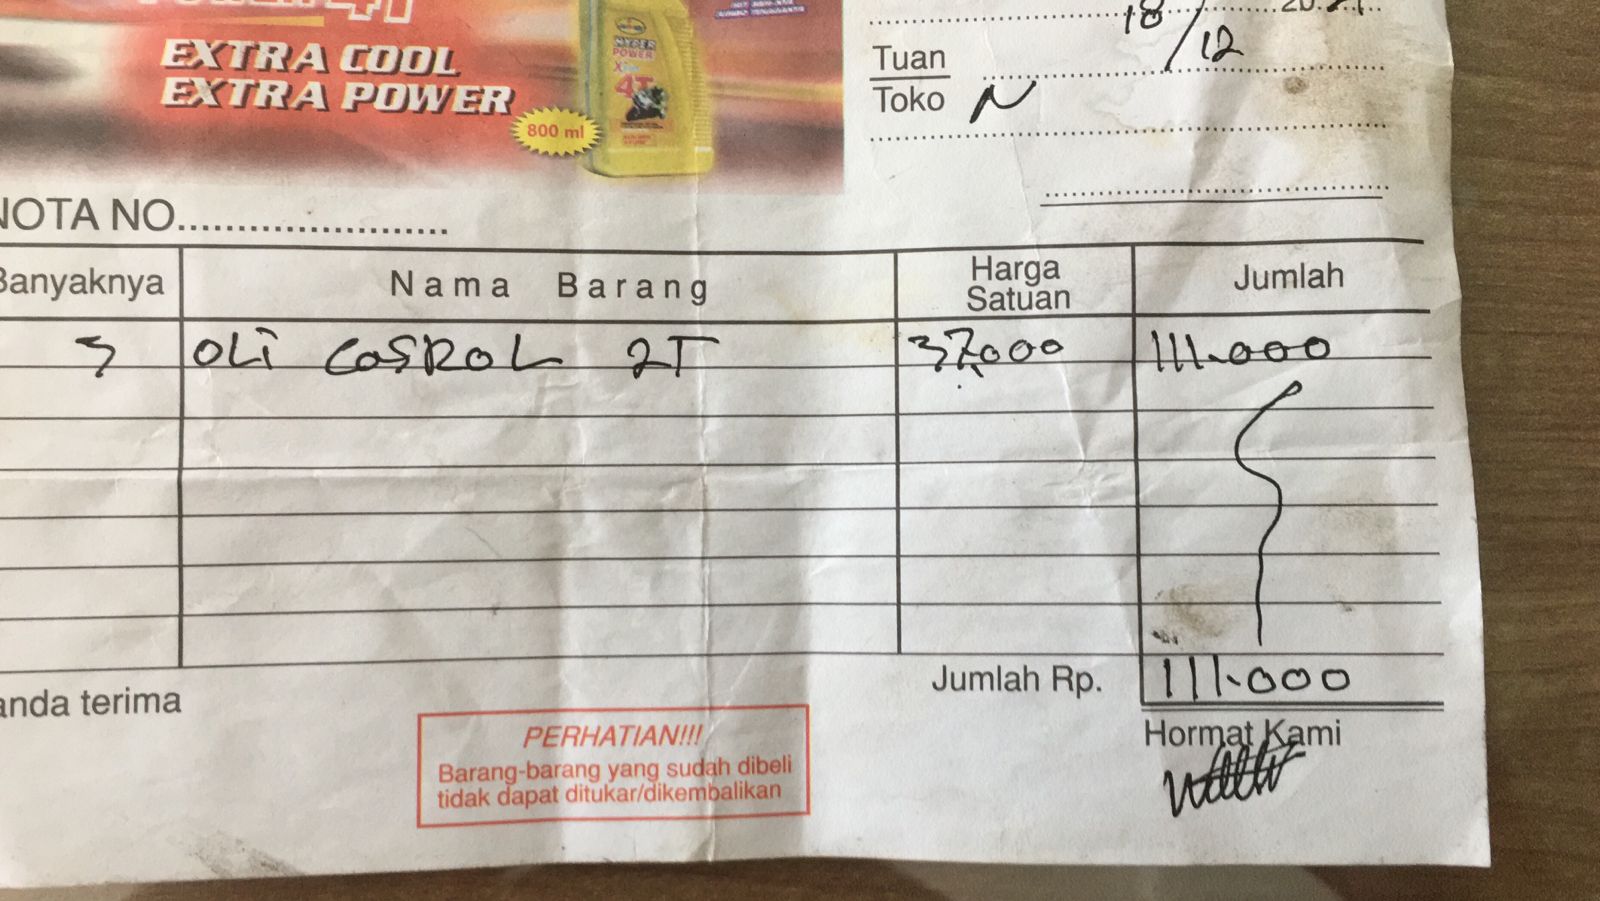 EXTRA COOL
EXTRA POWER
HYPER
POWER
4T
800 ml
18/12
Tuan
Toko N
NOTA NO.
Banyaknya Nama Barang Harga Satuan Jumlah
3 OLi COSROL 2T 37.000 111.000
Jumlah Rp. 111.000
anda terima
Hormat Kami
PERHATIAN!!!
Barang-barang yang sudah dibeli
tidak dapat ditukar/dikembalikan